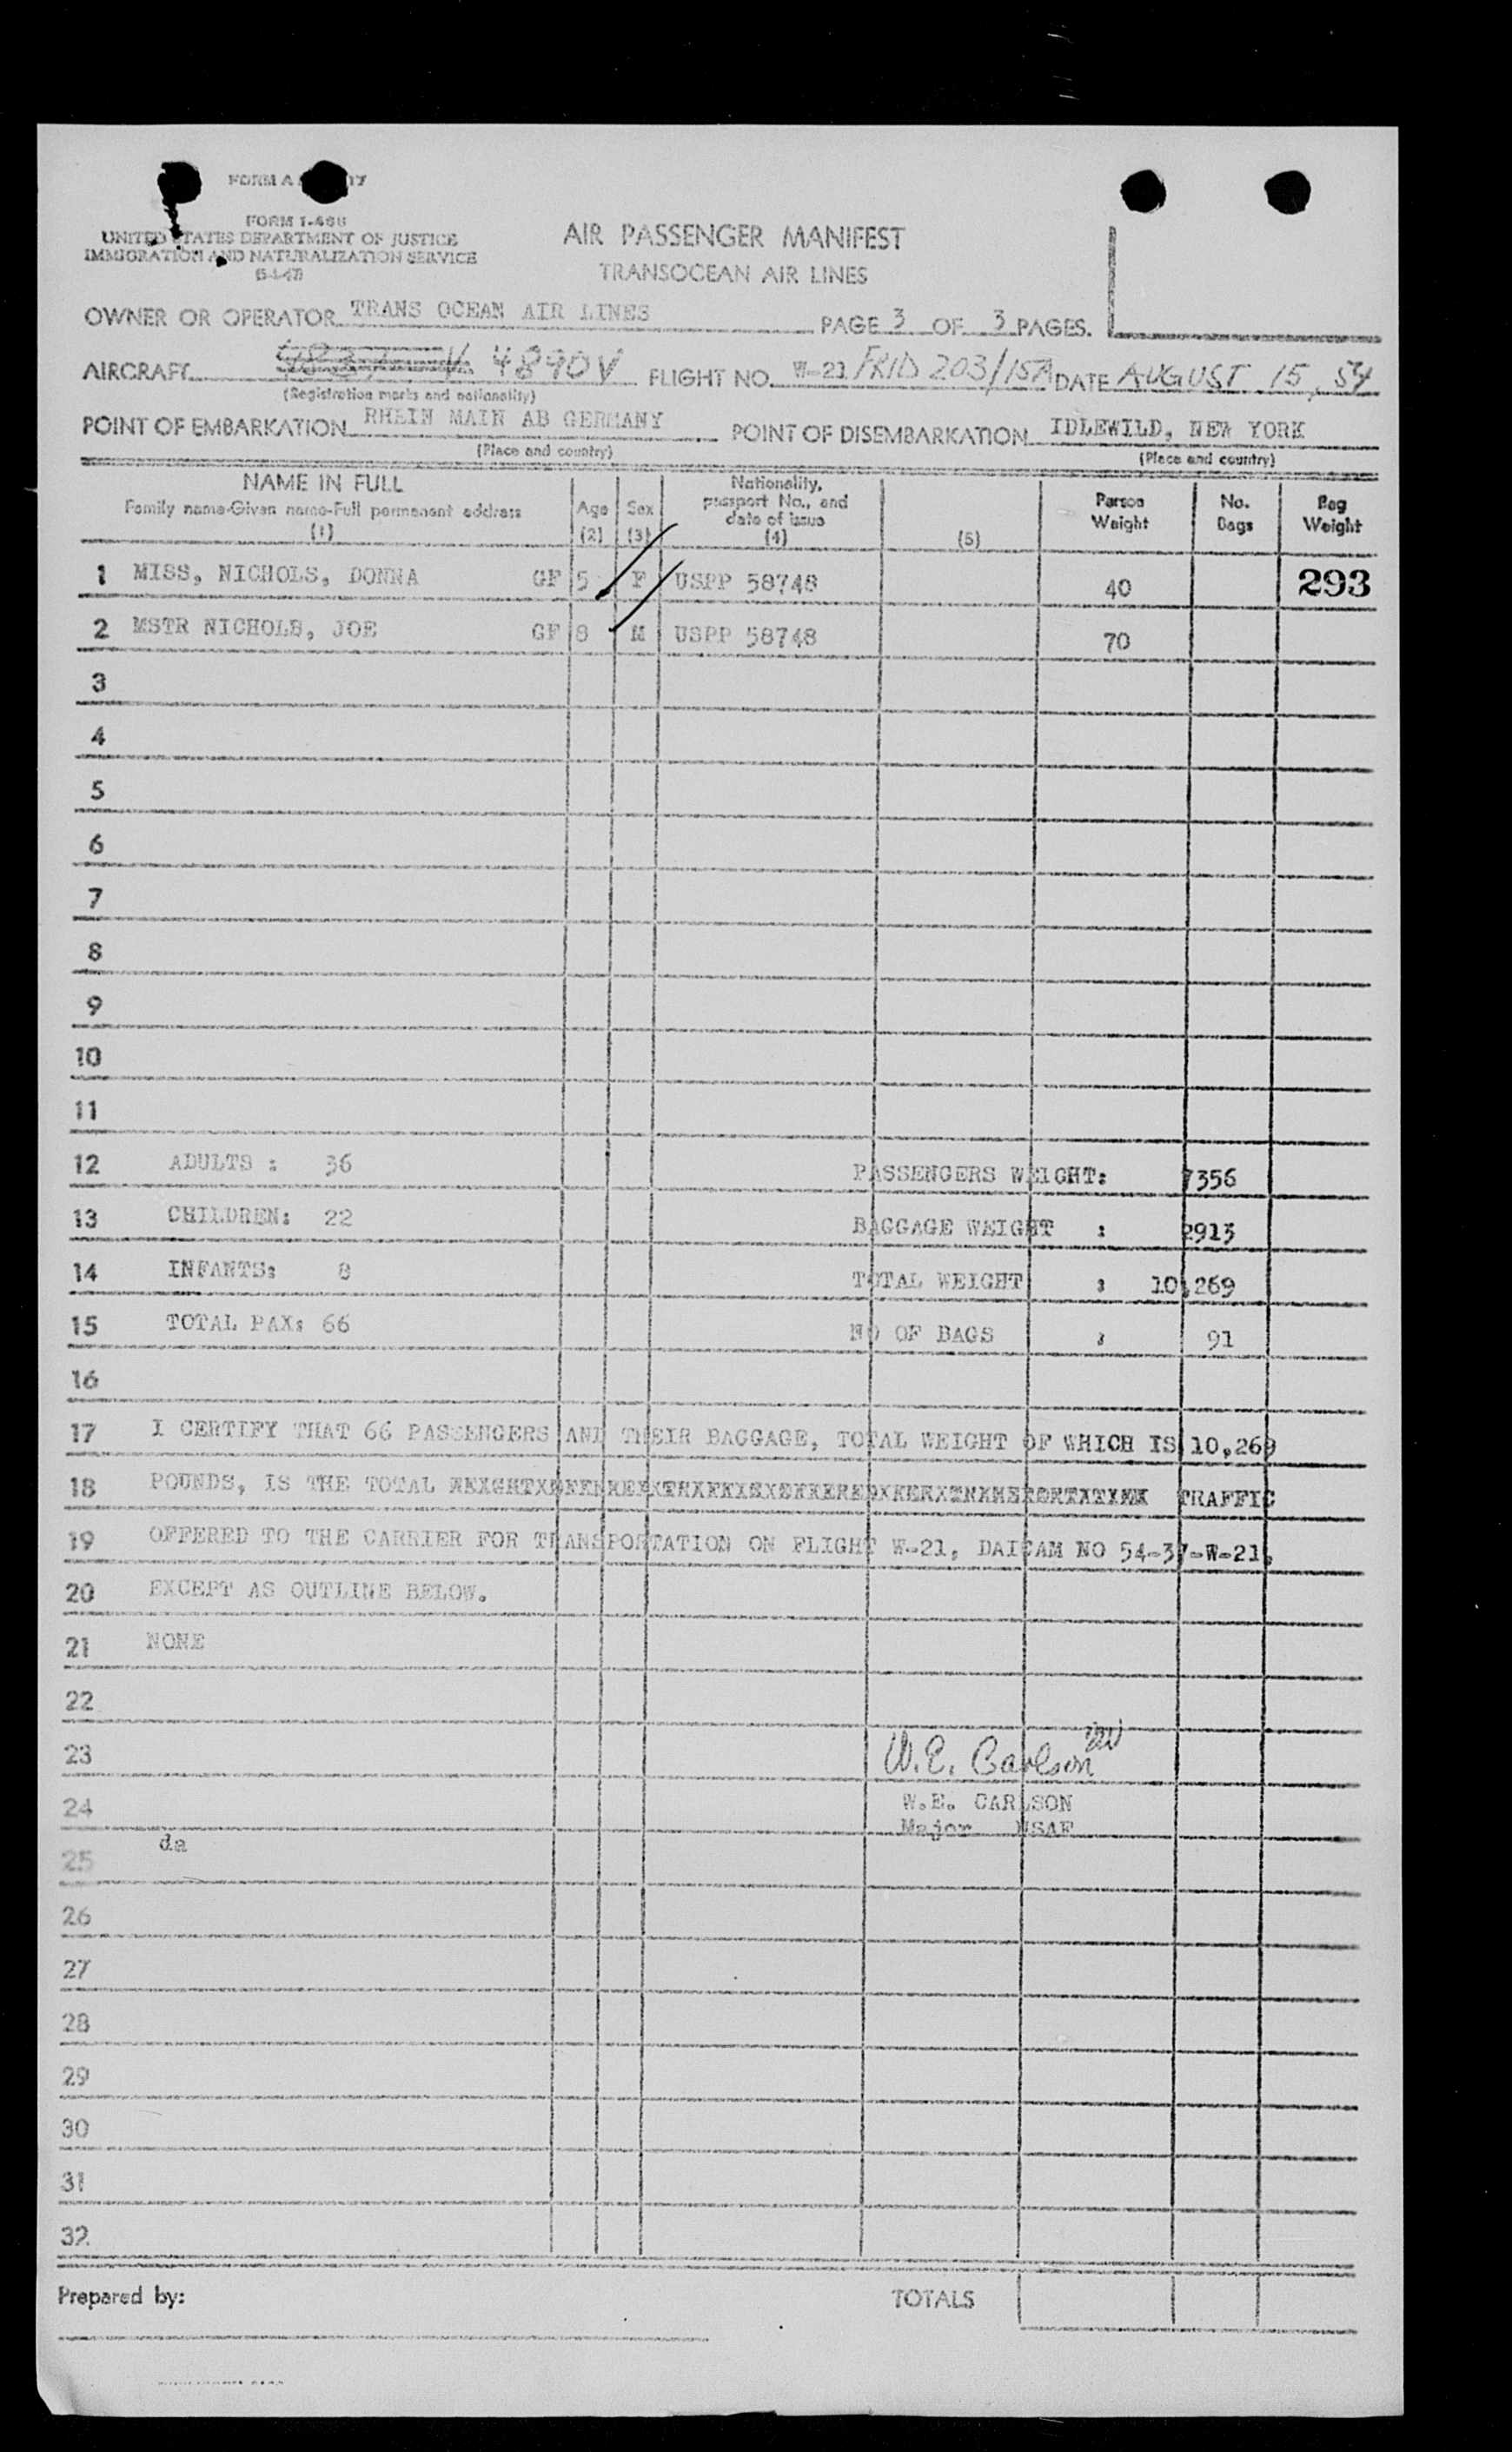 FORM I-466
UNITED STATES DEPARTMENT OF JUSTICE
IMMIGRATION AND NATURALIZATION SERVICE
AIR PASSENGER MANIFEST
TRANSOCEAN AIR LINES
OWNER OR OPERATOR TRANS OCEAN AIR LINES PAGE 3 OF 3 PAGES.
AIRCRAFT 4890V FLIGHT NO. W-21/FRID 203/15A DATE AUGUST 15, 54
(Registration marks and nationality)
POINT OF EMBARKATION RHEIN MAIN AB GERMANY POINT OF DISEMBARKATION IDLEWILD, NEW YORK
(Place and country) (Place and country)
NAME IN FULL
Family name-Given name-Full permanent address
(1)
Age
(2)
Sex
(3)
Nationality,
passport No., and
date of issue
(4)
(5)
Person
Weight
No.
Bags
Bag
Weight
1 MISS, NICHOLS, DONNA GF 5 F USPP 58748 40 293
2 MSTR NICHOLS, JOE GF 8 M USPP 58748 70
3
4
5
6
7
8
9
10
11
12 ADULTS : 36 PASSENGERS WEIGHT: 7356
13 CHILDREN: 22 BAGGAGE WEIGHT : 2913
14 INFANTS: 8 TOTAL WEIGHT : 10,269
15 TOTAL PAX: 66 NO OF BAGS : 91
16
17 I CERTIFY THAT 66 PASSENGERS AND THEIR BAGGAGE, TOTAL WEIGHT OF WHICH IS 10,269
18 POUNDS, IS THE TOTAL TRAFFIC
19 OFFERED TO THE CARRIER FOR TRANSPORTATION ON FLIGHT W-21, DAICAM NO 54-37-W-21,
20 EXCEPT AS OUTLINE BELOW.
21 NONE
22
23 W.E. Carlson
24 W.E. CARLSON
Major USAF
da
25
26
27
28
29
30
31
32
Prepared by: TOTALS